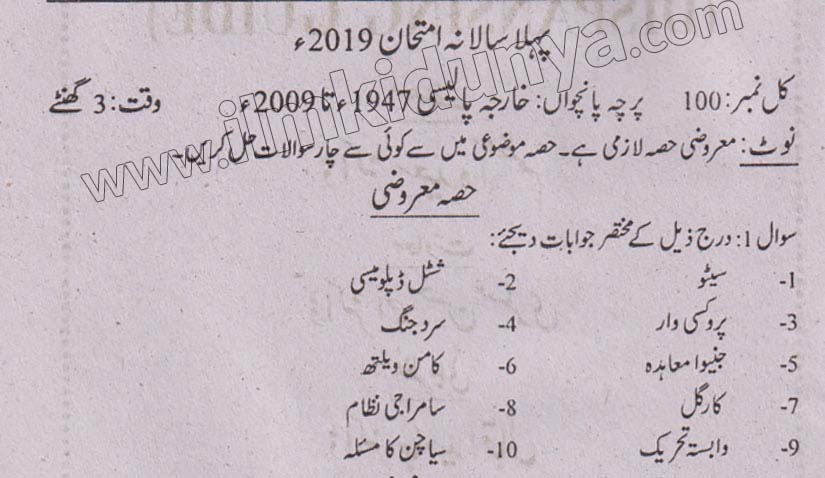 پہلا سالانہ امتحان 2019ء
کل نمبر: 100 پرچہ پانچواں: خارجہ پالیسی 1947ء تا 2009ء وقت: 3 گھنٹے
نوٹ: معروضی حصہ لازمی ہے۔ حصہ موضوعی میں سے کوئی سے چار سوالات حل کریں۔
حصہ معروضی
سوال 1: درج ذیل کے مختصر جوابات دیجئے:
1- سیٹو 2- شٹل ڈپلومیسی
3- پروکسی وار 4- سرد جنگ
5- جنیوا معاہدہ 6- کامن ویلتھ
7- کارگل 8- سامراجی نظام
9- وابستہ تحریک 10- سیاچن کا مسئلہ
www.ilmkidunya.com
www.ilmkidunya.com